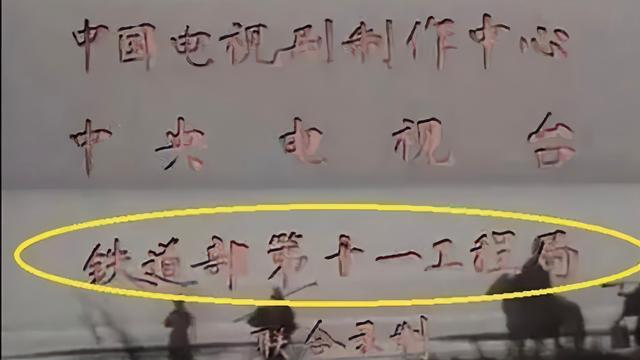 中国电视剧制作中心
中央电视台
铁道部第十一工程局
联合录制